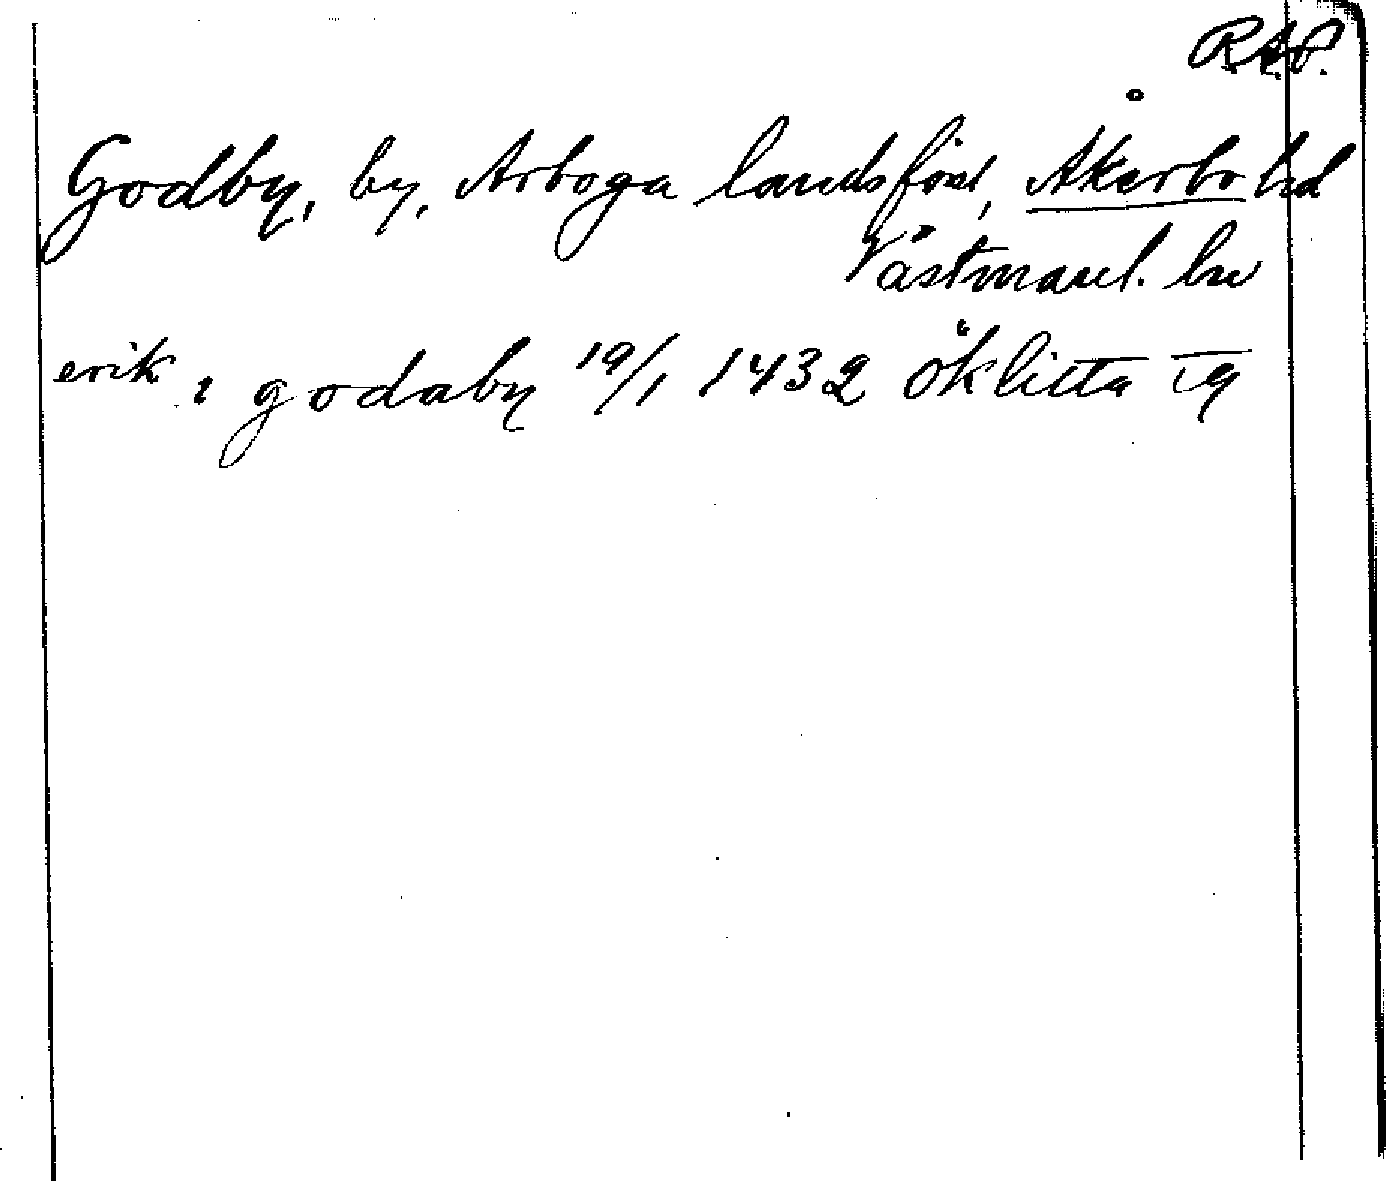 R.A.P.
Godby, by, Arboga landsförs, Åkerbo hd
Västmanl. ln
erik i godaby 19/1 1432 öklitta